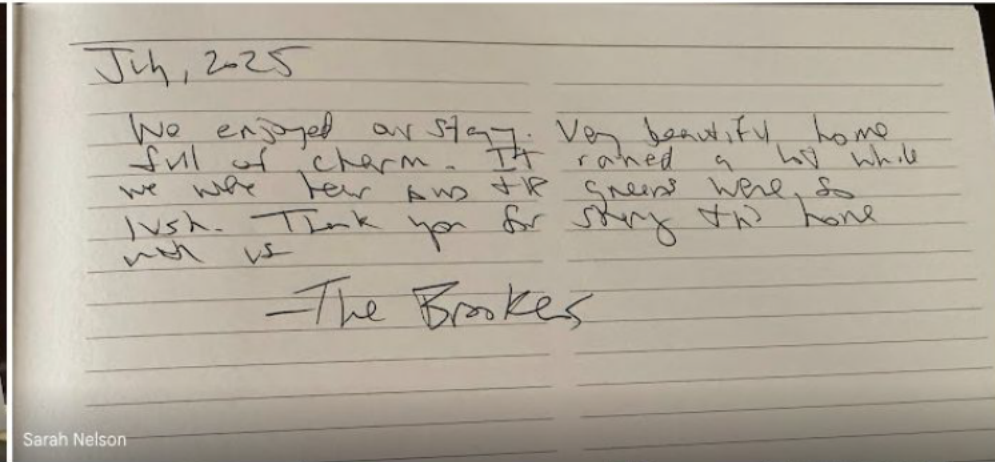 July, 2025
We enjoyed our stay. Very beautiful home
full of charm. It rained a lot while
we were here and the greens were so
lush. Thank you for sharing this home
with us
—The Brookes
Sarah Nelson